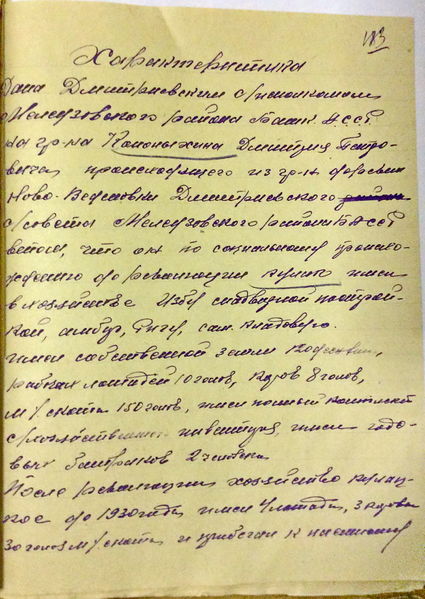 183
Характеристика
Дана Дмитриевским с/исполкомом
Мелеузовского района Башк АССР
на гр-на Каноныхина Дмитрия Петро-
вича происходящего из гр-н деревни
Ново-Веселовки Дмитриевского
с/совета Мелеузовского района БАССР
в том, что он по социальному проис-
хождению до революции кулак имел
в хозяйстве избу надворной построй-
кой, амбар, ригу, сам. кладовую.
имел собственной земли
рабочих лошадей 10 голов, коров 8 голов,
м/скота 150 голов, имел полный комплект
с/хозяйственного инвентаря, имел годо-
вых батраков 2 человека
После революции хозяйство
до 1930 года имел 4 лошади, 3 коровы
30 голов м/скота и прибегал к наемному